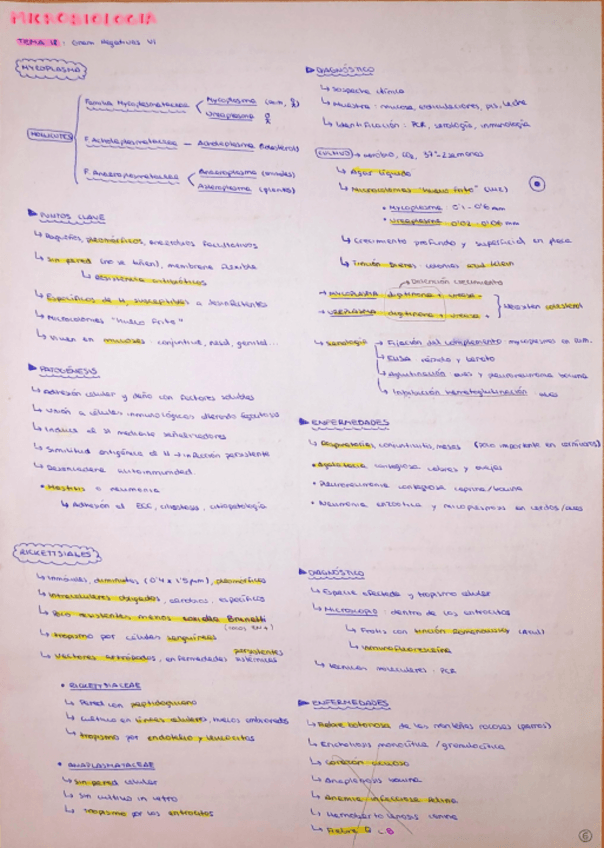 MICROBIOLOGÍA
TEMA 18: Gram Negativos VI
MYCOPLASMA
MOLLICUTES
Familia Mycoplasmataceae
Mycoplasma
Ureaplasma
F. Acholeplasmataceae — Acholeplasma (colesterol)
F. Anaeroplasmataceae
Anaeroplasma (animales)
Asteroplasma (plantas)
PUNTOS CLAVE
Pequeños, pleomórficos, anaerobios facultativos
Sin pared (no se tiñen), membrana flexible
Resistencia antibióticos
Específicos de H susceptibles a desinfectantes
Microcolonias "Huevo Frito"
Viven en mucosas: conjuntiva, nasal, genital...
PATOGÉNESIS
Adhesión celular y daño con factores solubles
Unión a células inmunológicas alterando fagocitosis
Induce al SI mediante señalizadores
Similitud antigénica al H → infección persistente
Desencadena autoinmunidad
Mastitis o neumonía
Adhesión al ECC, ciliostasis, citopatología
DIAGNÓSTICO
Sospecha clínica
Muestra: mucosa, articulaciones, pus, leche
Identificación: PCR, serología, inmunología
CULTIVO → aerobio, CO2, 37º-2 semanas
Agar líquido
Microcolonias "huevo frito" (luz)
Mycoplasma 0'1-0'6 mm
Ureaplasma 0'02-0'06 mm
Crecimiento profundo y superficial en placa
Tinción Dienes: colonias azul
Detención crecimiento
MYCOPLASMA: digitonina + ureasa -
UREAPLASMA: digitonina + ureasa +
Necesitan colesterol
Serología
Fijación del complemento mycoplasmas en rum.
ELISA rápido y barato
Aglutinación aves y pleuroneumonía bovina
Inhibición hemaglutinación aves
ENFERMEDADES
Respiratorias, conjuntivitis, mamas (poco importante en carnívoros)
Agalaxia contagiosa cabras y ovejas
Pleuroneumonía contagiosa caprina/bovina
Neumonía enzootica y micoplasmosis en cerdos/aves
RICKETTSIALES
Inmóviles, diminutas (0'4 x 1'5 µm), pleomórficas
Intracelulares obligados, aerobios, específicos
Poco resistentes, menos coxiella Brunetti
Tropismo por células sanguíneas
Vectores artrópodos, enfermedades sistémicas persistentes
RICKETTSIACEAE
Pared con peptidoglucano
Cultivo en líneas celulares, huevos embrionados
Tropismo por endotelio y leucocitos
ANAPLASMATACEAE
Sin pared celular
Sin cultivo in vitro
Tropismo por los eritrocitos
DIAGNÓSTICO
Especie afectada y tropismo celular
Microscopio: dentro de los eritrocitos
Frotis con tinción Romanowsky (azul)
Inmunofluoresceína
Técnicas moleculares: PCR
ENFERMEDADES
Fiebre botonosa de las montañas rocosas (perros)
Ehrlichiosis monocítica / granulocítica
Corazón acuoso
Anaplasmosis bovina
Anemia infecciosa felina
Hemobartonelosis canina
Fiebre Q C.B
6